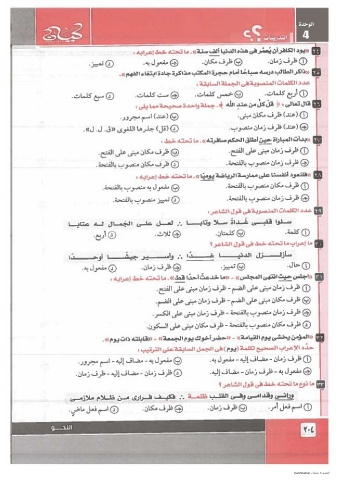 الوحدة
4
التدريبات
٢٤ «يود الكافر أن يُعمَّر فى هذه الدنيا ألف سنة». ما تحته خط إعرابه :
أ ظرف زمان. ب ظرف مكان. ج مفعول به. د تمييز.
٢٥ «ذاكر الطالب درسه صباحًا أمام حجرة المكتب مذاكرة جادة ابتغاء الفهم».
عدد الكلمات المنصوبة فى الجملة السابقة :
أ أربع كلمات. ب خمس كلمات. ج ست كلمات. د سبع كلمات.
٢٦ قال تعالى : ﴿ قل كلٌّ من عند الله ﴾. جملة واحدة صحيحة مما يلى :
أ (عند) ظرف مكان مبنى. ب (عند) اسم مجرور.
ج (عند) ظرف زمان منصوب. د (قل) جذرها اللغوى «ق. ل. ل».
٢٧ «بدأت المباراة حين أطلق الحكم صافرته». ما تحته خط :
أ ظرف زمان منصوب بالفتحة. ب ظرف مكان مبنى على الفتح.
ج ظرف مكان منصوب بالفتحة. د ظرف زمان مبنى على الفتح.
٢٨ «فلنعود أنفسنا على ممارسة الرياضة يوميًا». ما تحته خط إعرابه :
أ ظرف زمان منصوب بالفتحة. ب مفعول به منصوب بالفتحة.
ج ظرف مكان منصوب بالفتحة. د تمييز منصوب بالفتحة.
٢٩ عدد الكلمات المنصوبة فى قول الشاعر :
سلوا قلبى غداة سلا وتابا ∴ لعل على الجمال له عتابا
أ كلمة. ب كلمتان. ج ثلاث. د أربع.
٣٠ ما إعراب ما تحته خط فى قول الشاعر ؟
أ حال. ب تمييز. ج ظرف زمان. د مفعول به.
٣١ «اجلس حيث انتهى المجلس» - «ما خدعت أحدًا قط». ما تحته خط إعرابه :
أ ظرف زمان مبنى على الضم - ظرف زمان مبنى على الفتح.
ب ظرف مكان مبنى على الضم - ظرف زمان مبنى على الضم.
ج ظرف زمان منصوب بالفتحة - ظرف زمان مبنى على الكسر.
د ظرف مكان منصوب بالفتحة - ظرف زمان مبنى على السكون.
٣٢ «المؤمن يخشى يوم القيامة» - «حضر أخوك يوم الجمعة» - «قابلته ذات يوم».
حدد الإعراب الصحيح لكلمة (يوم) فى الجمل السابقة على الترتيب :
أ ظرف زمان - مضاف إليه - ظرف زمان. ب مفعول به - مضاف إليه - اسم مجرور.
ج مفعول به - ظرف زمان - مضاف إليه. د ظرف زمان - مضاف إليه - ظرف زمان.
٣٣ ما نوع ما تحته خط فى قول الشاعر ؟
ورائى وقدامى وفى القلب ظلمة ∴ فكيف فرارى من ظلام ملازمى
أ اسم فعل أمر. ب ظرف زمان. ج ظرف مكان. د اسم فعل ماضٍ.
٢٠٤
النحو